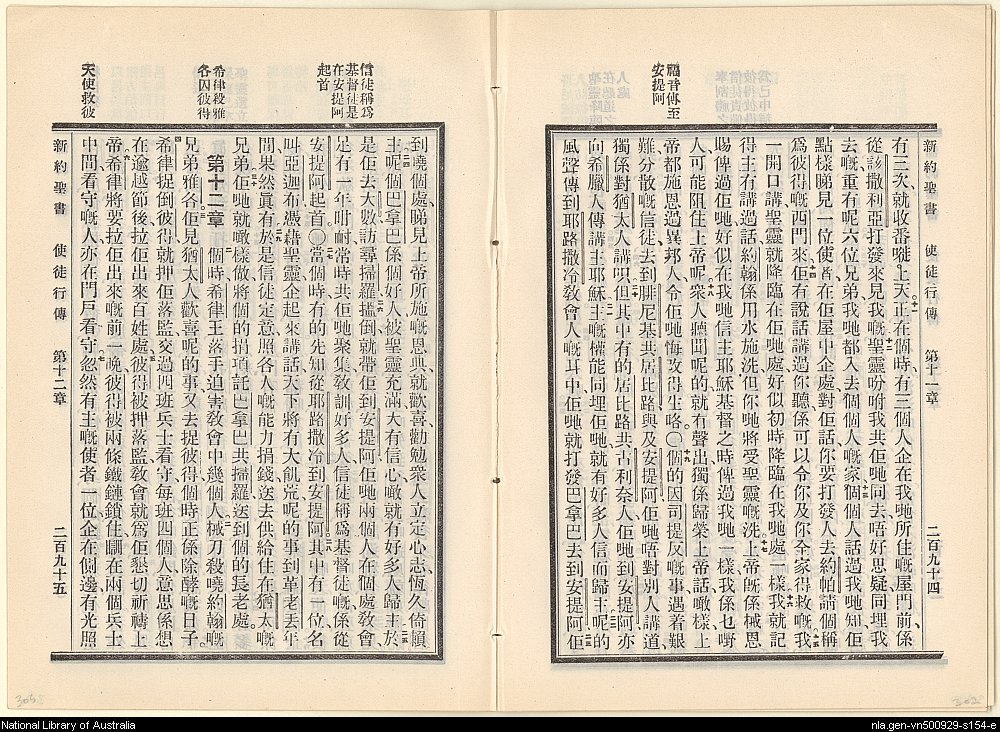 新約聖書　使徒行傳　第十一章　二百九十四
福音傳至
安提阿
有三次就收番嚟上天正在個時有三個人企在我哋所住嘅屋門前係
從該撒利亞打發來見我嘅聖靈吩咐我共佢哋同去唔好思疑同埋我
去嘅重有呢六位兄弟我哋都入去個個人嘅家個個人話過我哋知佢
點樣睇見一位使者在佢屋中企處對佢話你要打發人去約帕請個個稱
爲彼得嘅西門來佢有說話講過你聽係可以令你及你全家得救嘅我
一開口講聖靈就降臨在佢哋處好似初時降臨在我哋處一樣我就記
得主有講過話約翰係用水施洗但你哋將受聖靈嘅洗上帝旣係咁思
賜俾過佢哋好似在我哋信主耶穌基督之時俾過我哋一樣我係乜嘢
人可能阻住上帝呢衆人聽聞呢的就有聲出獨係歸榮上帝話噉樣上
帝都施恩過異邦人令佢哋悔改得生咯○個的因司提反嘅事遇着艱
難分散嘅信徒去到腓尼基共居比路與及安提阿佢哋唔對別人講道
獨係對猶太人講呮但其中有的居比路共古利奈人佢哋到安提阿亦
向希臘人傳講主耶穌主嘅權能同埋佢哋就有好多人信而歸主呢的
風聲傳到耶路撒冷敎會人嘅耳中佢哋就打發巴拿巴去到安提阿佢
信徒稱爲
基督徒是
在安提阿
起首
希律殺雅
各囚彼得
天使救彼
到曉個處睇見上帝所施嘅恩典就歡喜勸勉衆人立定心志恆久倚賴
主呢個巴拿巴係個好人被聖靈充滿大有信心噉就有好多人歸主於
是佢去大數訪尋掃羅搵倒就帶佢到安提阿佢哋兩個人在個處敎會
足有一年咁耐常時共佢哋聚集敎訓好多人信徒稱爲基督徒嘅係從
安提阿起首○當個時有的先知從耶路撒冷到安提阿其中有一位名
叫亞迦布憑藉聖靈企起來講話天下將有大飢荒呢的事到革老丟年
間果然眞有於是信徒定意照各人嘅能力捐錢送去供給住在猶太嘅
兄弟佢哋就噉樣做將個的捐項託巴拿巴共掃羅送到個的長老處
第十二章　個時希律王落手迫害敎會中幾個人械刀殺曉約翰嘅
兄弟雅各佢見猶太人歡喜呢的事又去捉彼得個時正係除酵嘅日子
希律捉倒彼得就押佢落監交過四班兵士看守每班四個人意思係想
在逾越節後拉佢出來百姓處彼得被押落監敎會就爲佢懇切祈禱上
帝希律將要拉佢出來嘅前一晚彼得被兩條鐵鏈鎖住瞓在兩個兵士
中間看守嘅人亦在門戶看守忽然有主嘅使者一位企在側邊有光照
新約聖書　使徒行傳　第十二章　二百九十五
National Library of Australia
nla.gen-vn500929-s154-e